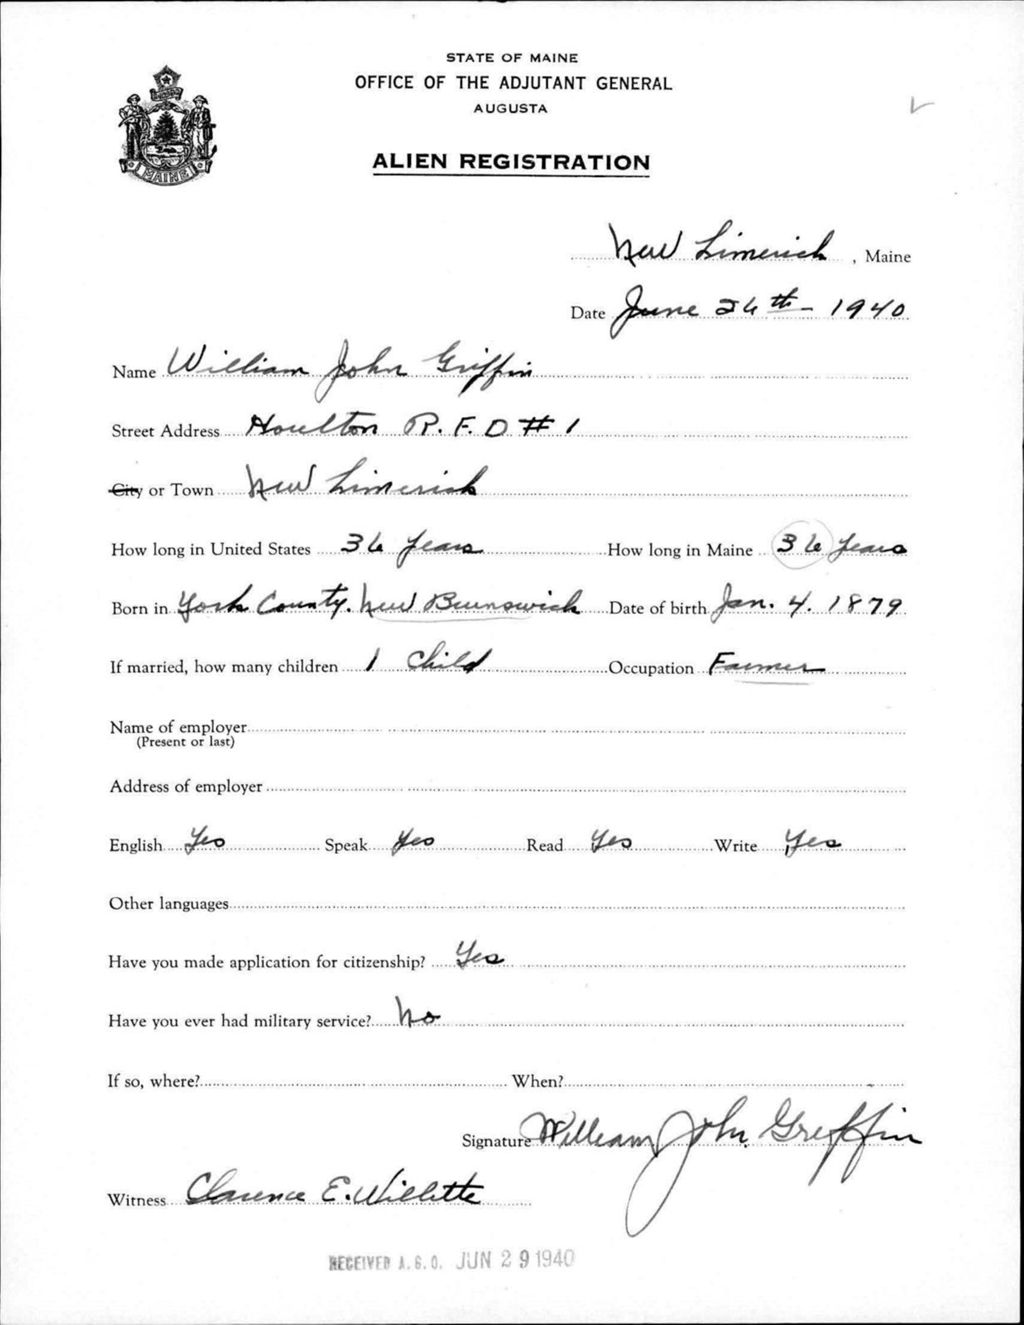 STATE OF MAINE
OFFICE OF THE ADJUTANT GENERAL
AUGUSTA
ALIEN REGISTRATION
MAINE
New Limerick, Maine
Date June 26th - 1940
Name William John Griffin
Street Address Houlton R.F.D #1
City or Town New Limerick
How long in United States 36 years How long in Maine 36 years
Born in York County. New Brunswick Date of birth Jan. 4. 1879
If married, how many children 1 Child Occupation Farmer
Name of employer
(Present or last)
Address of employer
English Yes Speak Yes Read Yes Write Yes
Other languages
Have you made application for citizenship? Yes
Have you ever had military service? No
If so, where? When?
Signature William John Griffin
Witness Clarence E. Willette
RECEIVED A.G.O. JUN 29 1940